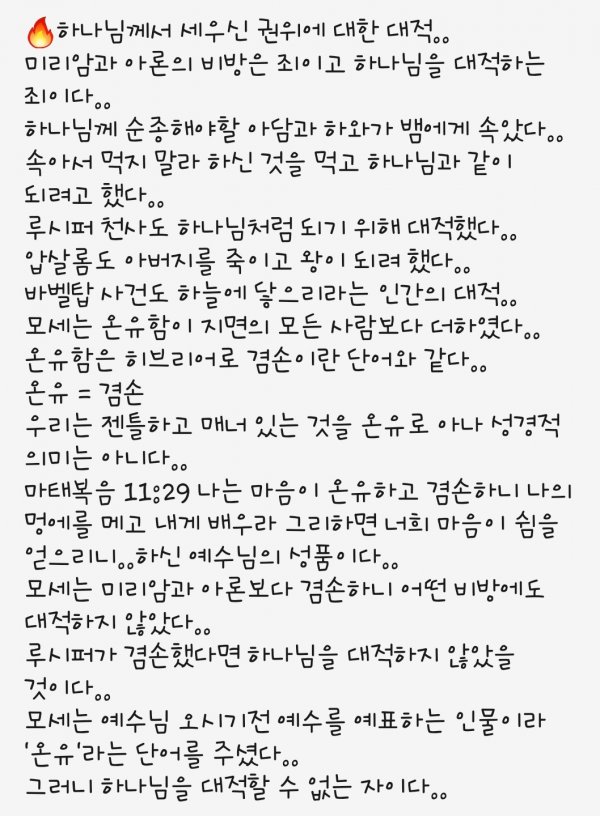 🔥하나님께서 세우신 권위에 대한 대적。。
미리암과 아론의 비방은 죄이고 하나님을 대적하는
죄이다。。
하나님께 순종해야할 아담과 하와가 뱀에게 속았다。。
속아서 먹지 말라 하신 것을 먹고 하나님과 같이
되려고 했다。。
루시퍼 천사도 하나님처럼 되기 위해 대적했다。。
압살롬도 아버지를 죽이고 왕이 되려 했다。。
바벨탑 사건도 하늘에 닿으리라는 인간의 대적。。
모세는 온유함이 지면의 모든 사람보다 더하였다。。
온유함은 히브리어로 겸손이란 단어와 같다。。
온유 = 겸손
우리는 젠틀하고 매너 있는 것을 온유로 아나 성경적
의미는 아니다。。
마태복음 11:29 나는 마음이 온유하고 겸손하니 나의
멍에를 메고 내게 배우라 그리하면 너희 마음이 쉼을
얻으리니。。하신 예수님의 성품이다。。
모세는 미리암과 아론보다 겸손하니 어떤 비방에도
대적하지 않았다。。
루시퍼가 겸손했다면 하나님을 대적하지 않았을
것이다。。
모세는 예수님 오시기전 예수를 예표하는 인물이라
'온유'라는 단어를 주셨다。。
그러니 하나님을 대적할 수 없는 자이다。。